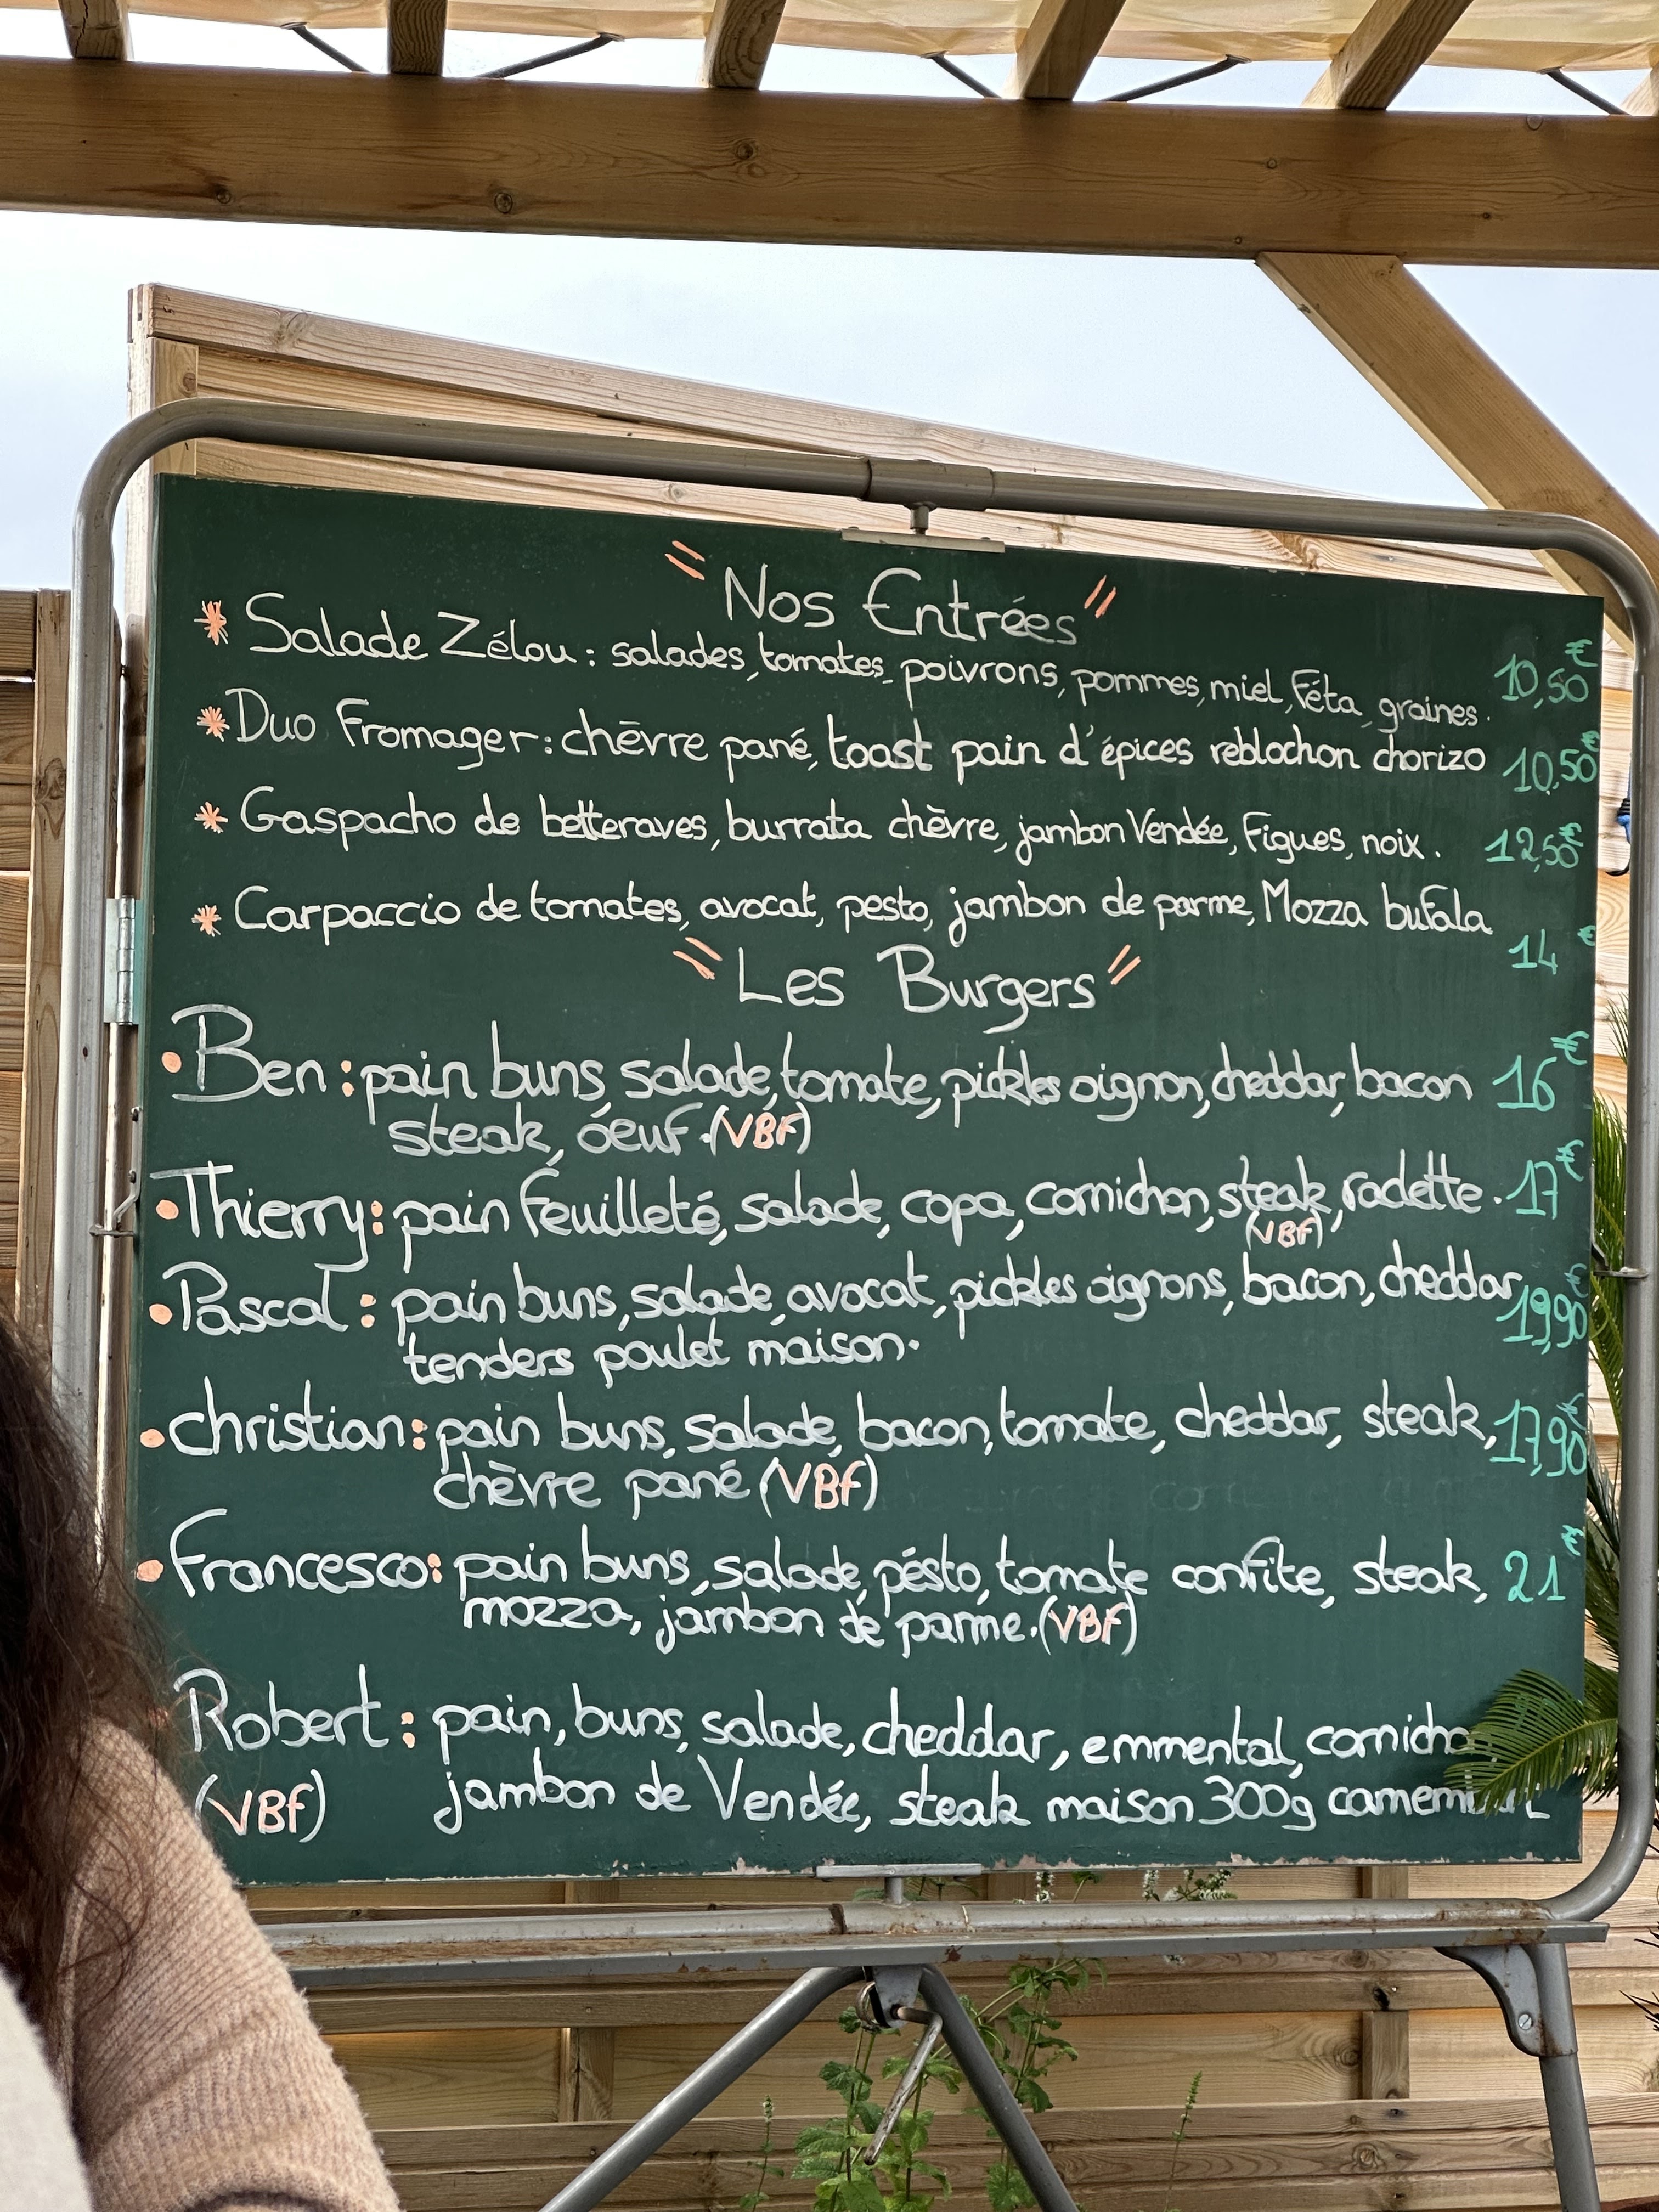 "Nos Entrées"
* Salade Zélou : salades, tomates, poivrons, pommes, miel, Féta, graines. 10,50€
* Duo Fromager : chèvre pané, toast pain d'épices reblochon chorizo 10,50€
* Gaspacho de betteraves, burrata chèvre, jambon Vendée, Figues, noix. 12,50€
* Carpaccio de tomates, avocat, pesto, jambon de parme, Mozza bufala
14€
"Les Burgers"
• Ben : pain buns, salade, tomate, pickles oignon, cheddar, bacon 16€
steak, oeuf. (VBF)
• Thierry : pain feuilleté, salade, copa, cornichon, steak, raclette. 17€
(VBF)
• Pascal : pain buns, salade, avocat, pickles oignons, bacon, cheddar 19,90€
tenders poulet maison.
• christian : pain buns, salade, bacon, tomate, cheddar, steak, 17,90€
chèvre pané (VBF)
• Francesco : pain buns, salade, pésto, tomate confite, steak, 21€
mozza, jambon de parme. (VBF)
Robert : pain, buns, salade, cheddar, emmental,
(VBF) jambon de Vendée, steak maison 300g